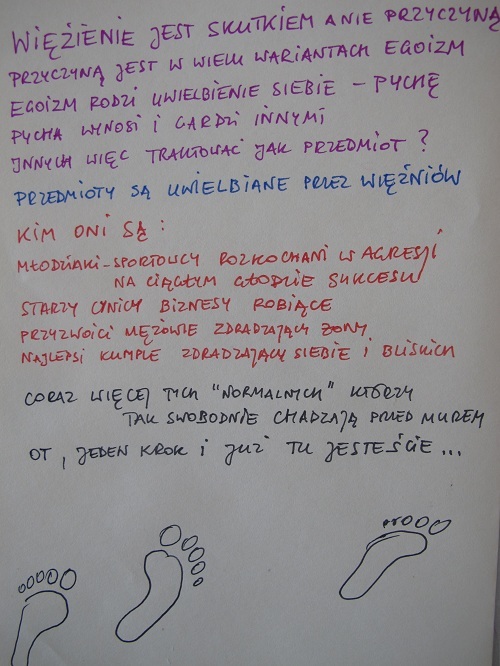 WIĘZIENIE JEST SKUTKIEM A NIE PRZYCZYNĄ
PRZYCZYNĄ JEST W WIELU WARIANTACH EGOIZM
EGOIZM RODZI UWIELBIENIE SIEBIE – PYCHĘ
PYCHA WYNOSI I GARDZI INNYMI
INNYCH WIĘC TRAKTOWAĆ JAK PRZEDMIOT ?
PRZEDMIOTY SĄ UWIELBIANE PRZEZ WIĘŹNIÓW
KIM ONI SĄ :
MŁODZIAKI-SPORTOWCY ROZKOCHANI W AGRESJI
NA CIĄGŁYM GŁODZIE SUKCESU
STARZY CYNICY BIZNESY ROBIĄCE
PRZYZWOICI MĘŻOWIE ZDRADZAJĄCY ŻONY
NAJLEPSI KUMPLE ZDRADZAJĄCY SIEBIE I BLISKICH
CORAZ WIĘCEJ TYCH "NORMALNYCH" KTÓRZY
TAK SWOBODNIE CHADZAJĄ PRZED MUREM
OT, JEDEN KROK I JUŻ TU JESTEŚCIE ...